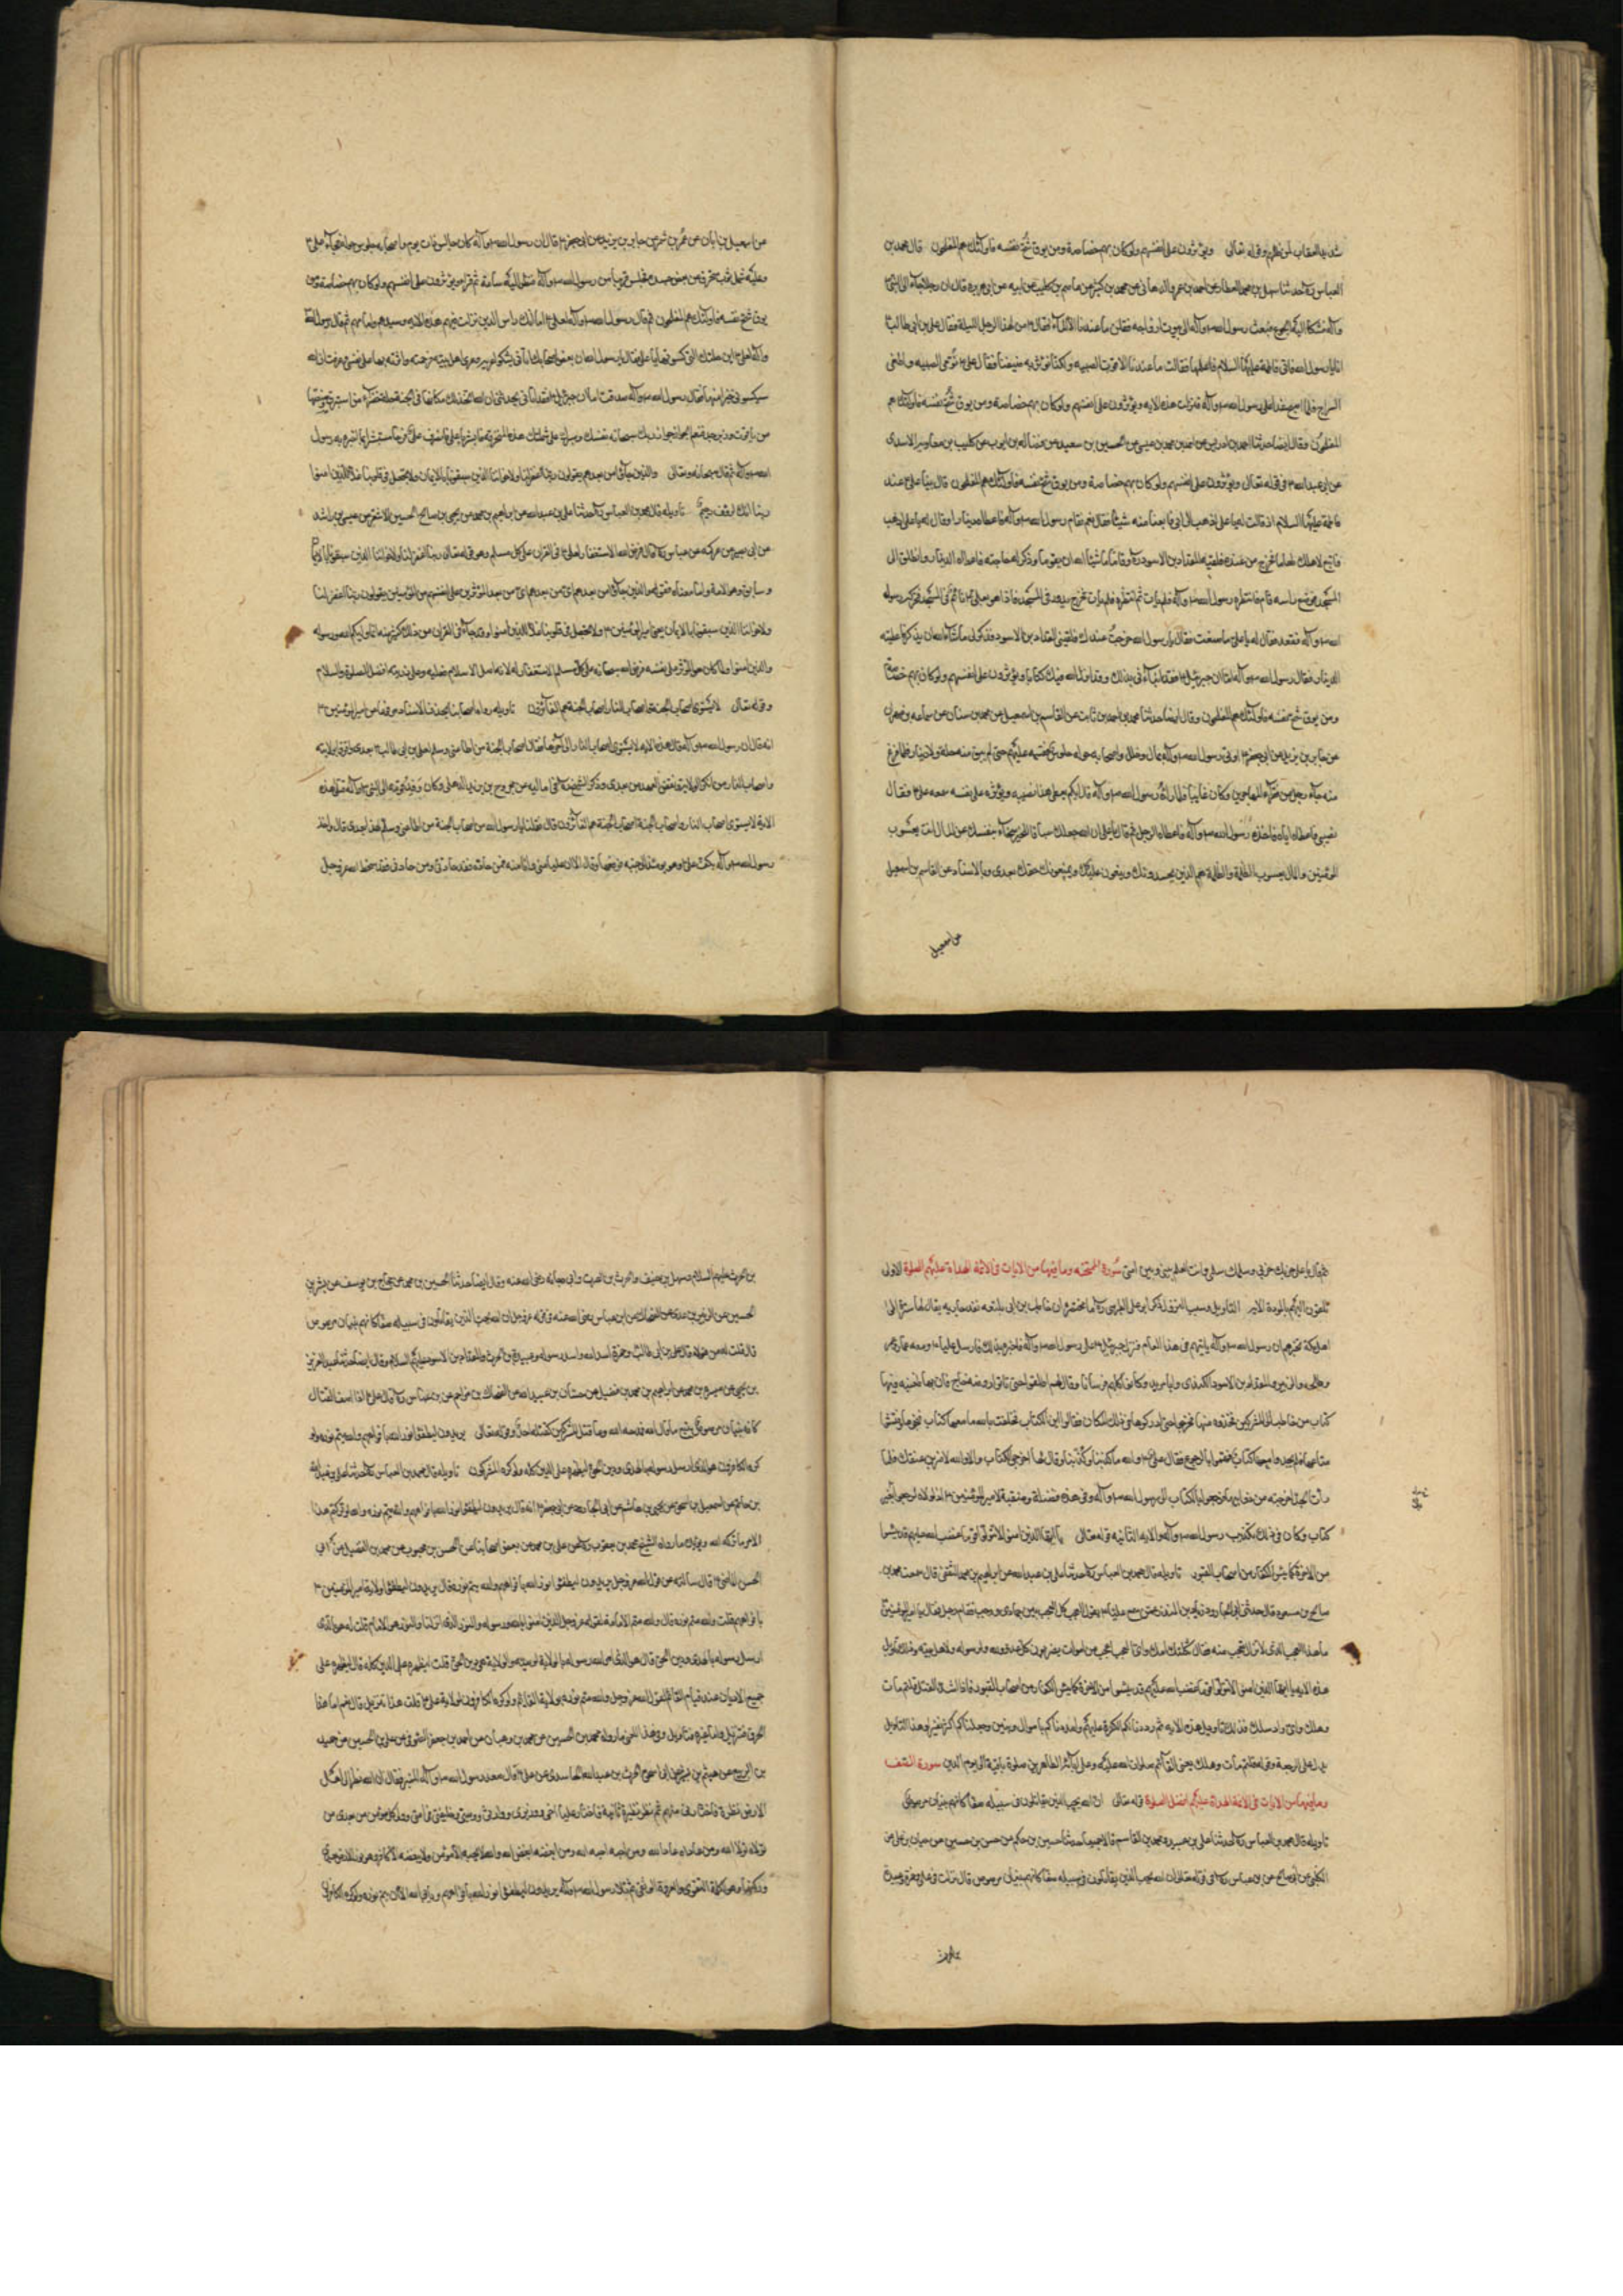 شديد العقاب لمن ظلمهم وقوله تعالى ويؤثرون على انفسهم ولوكان بهم خصاصة ومن يوق شح نفسه فاولئك هم المفلحون قال محمد بن
العباس حدثنا سهل بن محمد العطار عن احمد بن عمرو الدهقانى عن محمد بن كثير عن عاصم بن كليب عن ابيه عن ابى هريرة قال ان رجلا جاء الى النبى
وآله فشكا اليه الجوع فبعث رسول الله وآله الى بيوت ازواجه فقلن ما عندنا الا الماء فقال من لهذا الرجل الليلة فقال على بن ابى طالب
انا يا رسول الله فاتى فاطمة عليها السلام فاعلمها فقالت ما عندنا الا قوت الصبيه ولكنا نؤثر به ضيفنا فقال على نومى الصبيه واطفى
السراج فلما اصبح غدا على رسول الله وآله فنزلت هذه الايه ويؤثرون على انفسهم ولوكان بهم خصاصة ومن يوق شح نفسه فاولئك هم
المفلحون وقال ايضا حدثنا احمد بن ادريس عن احمد بن محمد بن عيسى عن الحسين بن سعيد عن فضالة بن ايوب عن كليب بن معاوية الاسدى
عن ابى عبدالله فى قوله تعالى ويؤثرون على انفسهم ولوكان بهم خصاصة ومن يوق شح نفسه فاولئك هم المفلحون قال بينا على عند
فاطمة عليها السلام اذ قالت له يا على اذهب الى ابى فابغنا منه شيئا فقال نعم فقام رسول الله وآله فاعطاه دينارا وقال له يا على اذهب
فابتع لاهلك طعاما فخرج من عنده فلقيه المقداد بن الاسود وقاما ما شاء الله ان يقوما وذكر له حاجته فاعطاه الدينار وانطلق الى
المسجد فوضع راسه فنام فانتظره رسول الله وآله فلم يات ثم انتظره فلم يات فخرج يدور فى المسجد فاذا هو بعلى نائم فى المسجد فحركه رسول
الله وآله فقعد فقال له يا على ما صنعت فقال يا رسول الله خرجت من عندك فلقينى المقداد بن الاسود فذكر لى ما شاء الله ان يذكر فاعطيته
الدينار فقال رسول الله وآله اما ان جبرئيل فقد انبأنى بذلك وقد انزل الله فيك كتابا ويؤثرون على انفسهم ولوكان بهم خصاصة
ومن يوق شح نفسه فاولئك هم المفلحون وقال ايضا حدثنا محمد بن احمد بن ثابت عن القاسم بن اسمعيل عن محمد بن سنان عن سماعه بن مهران
عن جابر بن يزيد عن ابى جعفر اوتى رسول الله وآله بمال وحلل واصحابه حوله جلوس فقسمه عليهم حتى لم يبق منه حلة ولا دينار فلما فرغ
منه جاء رجل من فقراء المهاجرين وكان غايبا فلما راه رسول الله وآله قال ايكم يعطى هذا نصيبه ويؤثره على نفسه فسمعه على فقال
نصيبى فاعطاه اياه فاخذه رسول الله وآله فاعطاه الرجل ثم قال يا على ان الله جعلك سباقا للخير سخاء بنفسك عن المال انت يعسوب
المؤمنين والمال يعسوب الظلمة والظلمة هم الذين يحسدونك ويبغون عليك ويمنعونك حقك بعدى وبالاسناد عن القاسم بن اسمعيل
عن اسمعيل
عن اسمعيل بن ابان عن عمرو بن شمر عن جابر بن يزيد عن ابى جعفر قال ان رسول الله وآله كان جالسا ذات يوم واصحابه جلوس حوله فجاء على
وعليه سمل ثوب منخرق عن بعض جسده فجلس قريبا من رسول الله وآله فنظر اليه ساعة ثم قرا ويؤثرون على انفسهم ولوكان بهم خصاصة ومن
يوق شح نفسه فاولئك هم المفلحون ثم قال رسول الله وآله لعلى اما انك راس الذين نزلت فيهم هذه الايه وسيدهم وامامهم ثم قال رسول الله
وآله لعلى اين حلتك التى كسوتكها يا على فقال يا رسول الله ان بعض اصحابك اتانى يشكو عريه وعرى اهل بيته فرحمته وآثرته بها على نفسى وعرفت ان الله
سيكسونى خيرا منها فقال رسول الله وآله صدقت اما ان جبرئيل فقد اتانى يحدثنى ان الله اتخذ لك مكانها فى الجنة حلة خضراء من استبرق وصنفتها
من ياقوت وزبرجد فنعم الجواز جواز ربك بسخاوة نفسك وصبرك على شملتك هذه المنخرقة فابشر يا على فانصرف على فرحا مستبشرا بما اخبره به رسول
الله وآله ثم قال سبحانه وتعالى والذين جاؤا من بعدهم يقولون ربنا اغفر لنا ولاخواننا الذين سبقونا بالايمان ولا تجعل فى قلوبنا غلا للذين امنوا
ربنا انك رؤف رحيم تاويله قال محمد بن العباس حدثنا على بن عبدالله عن ابراهيم بن محمد عن يحيى بن صالح الحسين الاشقر عن عيسى بن راشد
عن ابى بصير عن عكرمه عن ابن عباس قال فرض الله الاستغفار لعلى فى القران على كل مسلم وهو قوله تعالى ربنا اغفر لنا ولاخواننا الذين سبقونا بالايمان
ولاخواننا الذين سبقونا بالايمان يعنى امير المؤمنين ولا تجعل فى قلوبنا غلا للذين امنوا
والذين امنوا ولما كان هو المؤثر على نفسه فرض الله سبحانه على كل مسلم الاستغفار له لانه اصل الاسلام فعليه وعلى ذريته افضل الصلوة والسلام
وقوله تعالى لا يستوى اصحاب النار واصحاب الجنة اصحاب الجنة هم الفائزون تاويله رواه اصحابنا بحذف الاسناد مرفوعا عن امير المؤمنين
انه قال ان رسول الله وآله تلا هذه الايه لا يستوى اصحاب النار الى آخرها فقال اصحاب الجنة من اطاعنى وسلم لعلى بن ابى طالب بعدى واقر بولايته
واصحاب النار من انكر الولاية ونقض العهد من بعدى وذكر الشيخ فى اماليه عن مجروح بن زيد الذهلى وكان فى وفد قومه الى النبى وآله فتلا هذه
الاية لا يستوى اصحاب النار واصحاب الجنة اصحاب الجنة هم الفائزون قال فقلنا يا رسول الله من اصحاب الجنة قال من اطاعنى وسلم لهذا بعدى قال واخذ
رسول الله وآله بكف على وهو يومئذ الى جنبه فرفعها وقال الا ان عليا منى وانا منه فمن حاده فقد حادنى ومن حادنى فقد اسخط الله عز وجل
ثم قال يا على حربك حربى وسلمك سلمى وانت العلم بينى وبين امتى سورة الممتحنه وما فيها من الايات فى الائمة الهداة عليهم الصلوة الاولى
تلقون اليهم بالمودة الايه التاويل وسبب النزول ذكر ابو على الطبرسى مختصرا ان حاطب بن ابى بلتعه
اهل مكة يخبرهم ان رسول الله وآله ياتيهم فى هذا العام فنزل جبرئيل على رسول الله وآله فاخبره بذلك فارسل عليا ومعه عمار وعمر
وطلحه والزبير والمقداد بن الاسود الكندى وابا مرثد وكانوا كلهم فرسانا وقال لهم انطلقوا حتى تاتوا روضة خاخ فان بها ظعينه ومعها
كتاب من حاطب الى المشركين فخذوه منها فخرجوا حتى ادركوها فى ذلك المكان فقالوا اين الكتاب فحلفت بالله ما معها كتاب فنحوها وفتشوا
متاعها فلم يجدوا معها كتابا فهموا بالرجوع فقال على والله ما كذبنا ولا كذبنا وقال لها اخرجى الكتاب والا والله لاضربن عنقك فلما
رات الجد اخرجته من ذوابتها فرجعوا بالكتاب الى رسول الله وآله وفى هذه فضيلة ومنقبة لامير المؤمنين اذ لولاه لرجعوا بغير
كتاب وكان فى ذلك تكذيب رسول الله وآله والايه الثانيه قوله تعالى يا ايها الذين امنوا لا تتولوا قوما غضب الله عليهم قد يئسوا
من الاخرة كما يئس الكفار من اصحاب القبور تاويله قال محمد بن العباس حدثنا على بن عبدالله عن ابراهيم بن محمد الثقفى قال سمعت محمد بن
صالح بن مسعود قال حدثنى ابو الجارود زياد بن المنذر عمن سمع عليا يقول العجب كل العجب بين جمادى ورجب فقام رجل فقال يا امير المؤمنين
ما هذا العجب الذى لا تزال تعجب منه فقال ثكلتك امك واى عجب اعجب من اموات يضربون كل عدو لله ولرسوله ولاهل بيته وذلك تاويل
هذه الايه يا ايها الذين امنوا لا تتولوا قوما غضب الله عليهم قد يئسوا من الاخرة كما يئس الكفار من اصحاب القبور فاذا اشتد القتل قلتم مات
وهلك واى واد سلك وذلك تاويل هذه الايه ثم رددنا لكم الكرة عليهم وامددناكم باموال وبنين وجعلناكم اكثر نفيرا وهذا التاويل
يدل على الرجعة وقوله قلتم مات وهلك يعنى القآئم صلوات الله عليه وعلى آبائه الطاهرين صلوة باقية الى يوم الدين سورة الصف
وما فيها من الايات فى الائمة الهداة عليهم افضل الصلوة قوله تعالى ان الله يحب الذين يقاتلون فى سبيله صفا كانهم بنيان مرصوص
تاويله قال محمد بن العباس حدثنا على بن عبيد ومحمد بن القاسم قالا جميعا حدثنا حسين بن حكم عن حسن بن حسين عن حيان بن على عن
الكلبى عن ابى صالح عن ابن عباس فى قوله تعالى ان الله يحب الذين يقاتلون فى سبيله صفا كانهم بنيان مرصوص قال نزلت فى على وحمزة وعبيدة
بن الحرث عليهم السلام وسهل بن حنيف والحرث بن الصمة وابى دجانه رضى الله عنه وقال ايضا حدثنا الحسين بن محمد عن حجاج بن يوسف عن بشر بن
الحسين عن الزبير بن عدى عن الضحاك عن ابن عباس رضى الله عنه فى قوله عز وجل ان الله يحب الذين يقاتلون فى سبيله صفا كانهم بنيان مرصوص
قال قلت له من هؤلاء قال على بن ابى طالب وحمزة اسد الله واسد رسوله وعبيدة بن الحرث والمقداد بن الاسود عليهم السلام وقال ايضا حدثنا عبد العزيز
بن يحيى عن ميسرة بن محمد عن ابراهيم بن محمد بن فضيل عن حسان بن عبيد الله عن الضحاك بن مزاحم عن ابن عباس قال كان على اذا صف القتال
كانه بنيان مرصوص يتبع ما قال الله فمدحه الله وما قتل المشركين كقتله احد وقوله تعالى يريدون ليطفؤا نور الله بافواههم والله متم نوره ولو
كره الكافرون هو الذى ارسل رسوله بالهدى ودين الحق ليظهره على الدين كله ولو كره المشركون تاويله قال محمد بن العباس حدثنا على بن عبدالله
بن حاتم عن اسمعيل بن اسحق عن يحيى بن هاشم عن ابى الجارود عن ابى جعفر انه قال يريدون ليطفؤا نور الله بافواههم والله متم نوره والله لو تركتم هذا
الامر ما تركه الله ويؤيده ما رواه الشيخ محمد بن يعقوب عن على بن محمد عن بعض اصحابنا عن الحسن بن محبوب عن محمد بن الفضيل عن ابى
الحسن الماضى قال سالته عن قول الله عز وجل يريدون ليطفؤا نور الله بافواههم والله متم نوره قال يريدون ليطفؤا ولاية امير المؤمنين
بافواههم قلت والله متم نوره قال والله متم الامامة لقوله عز وجل الذين امنوا بالله ورسوله والنور الذى انزلنا والنور هو الامام قلت له هو الذى
ارسل رسوله بالهدى ودين الحق قال هو الذى امر الله رسوله بالولاية لوصيه والولاية هى دين الحق قلت ليظهره على الدين كله قال ليظهره على
جميع الاديان عند قيام القائم لقول الله عز وجل والله متم نوره بولاية القائم ولو كره الكافرون لولاية على قلت هذا تنزيل قال نعم اما هذا
الحرف فتنزيل واما غيره فتاويل وفى هذا المعنى ما رواه محمد بن الحسين عن محمد بن وهبان عن احمد بن جعفر الصوفى عن على بن الحسين عن حميد
بن الربيع عن هيثم بن بشير عن ابى اسحق الحرث بن عبدالله الحاسدى عن على قال صعد رسول الله وآله المنبر فقال ان الله نظر الى اهل
الارض نظرة فاختارنى منهم ثم نظر نظرة ثانية فاختار عليا اخى ووزيرى ووارثى ووصيى وخليفتى فى امتى وولى كل مؤمن من بعدى من
تولاه تولى الله ومن عاداه عادا الله ومن احبه احبه الله ومن ابغضه ابغض الله والله لا يحبه الا مؤمن ولا يبغضه الا كافر وهو نور الارض بعدى
وركنها وهو كلمة التقوى والعروة الوثقى ثم تلا رسول الله وآله يريدون ليطفؤا نور الله بافواههم ويابى الله الا ان يتم نوره ولو كره الكافرون